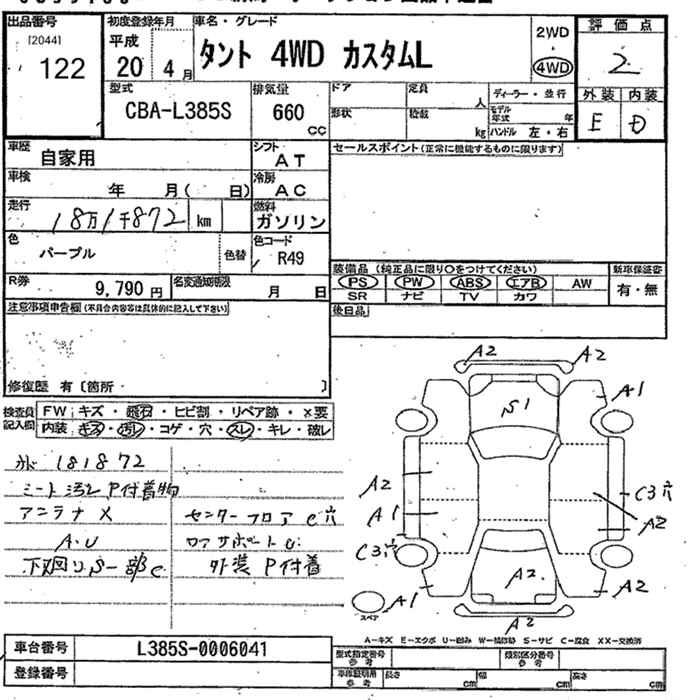 出品番号
[2044]
122
初度登録年月
平成
20 4月
車名・グレード
タント 4WD カスタムL
2WD
・
4WD
評価点
2
型式
CBA-L385S
排気量
660
cc
ドア
形状
定員
人
積載
kg
ディーラー・並行
モデル年式 年
ハンドル 左・右
外装 内装
E D
車歴
自家用
シフト
AT
セールスポイント(正常に機能するものに限ります)
車検
年 月( 日)
冷房
AC
走行
18万1千872 km
燃料
ガソリン
色
パープル
色替
色コード
R49
装備品(純正品に限り○をつけてください)
新車保証書
PS PW ABS エアB AW
SR ナビ TV カワ
有・無
R券
9,790円
名変通知期限
月 日
注意事項申告欄(不具合内容等は具体的に記入して下さい)
後日品
修復歴 有〔箇所 〕
検査員記入欄
FW キズ・飛石・ヒビ割・リペア跡・×要
内装 キズ・汚レ・コゲ・穴・スレ・キレ・破レ
181872
シート汚レ P付着物
アンテナ X
A.U
下廻りS一部C
センターフロア C穴
ロアサポート C
外装 P付着
A2
A2
A1
S1
A2
A1
C3穴
C3穴
A2
A2
A2
A1
A2
スペア
A-キズ E-エクボ U-凹み W-補修跡 S-サビ C-腐食 XX-交換済
車台番号
L385S-0006041
登録番号
型式指定番号
参考
類別区分番号
参考
車庫証明用
参考
長さ cm
幅 cm
高さ cm